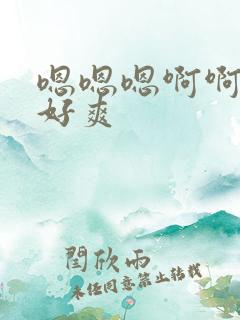 嗯嗯嗯啊啊
好爽
闫欣雨
未经同意禁止转载